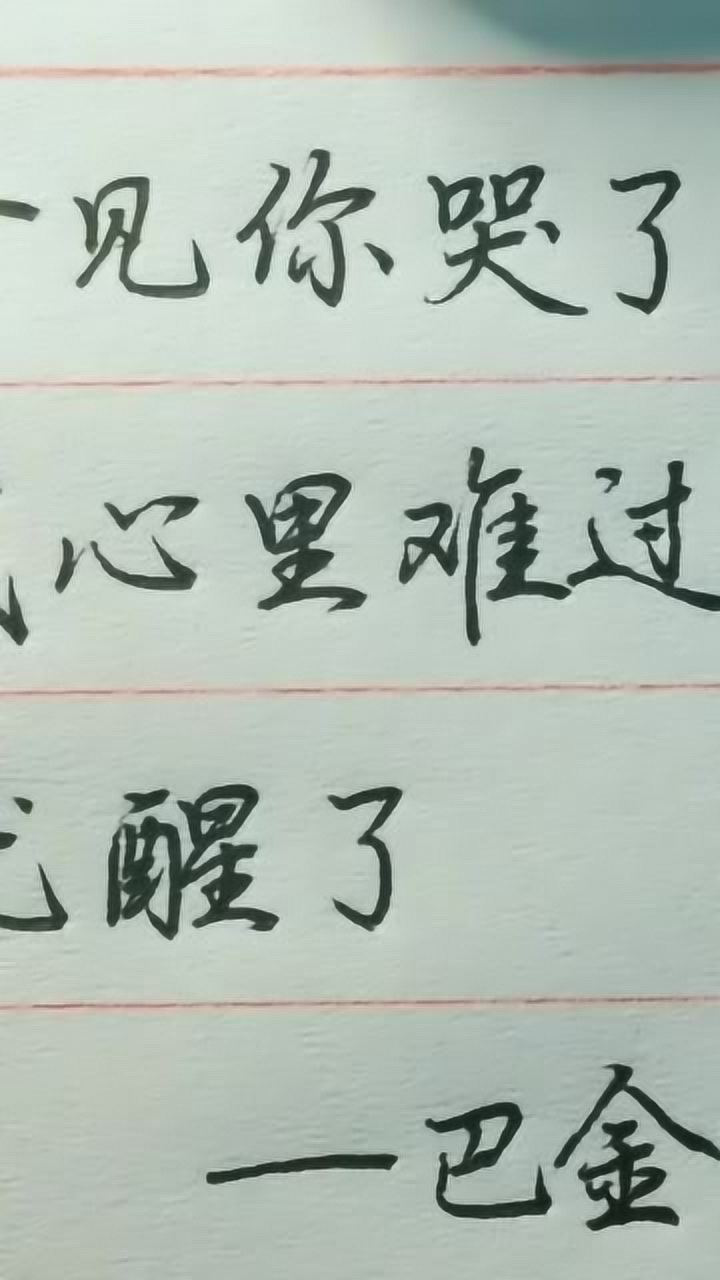 见你哭了
心里难过
醒了
—巴金